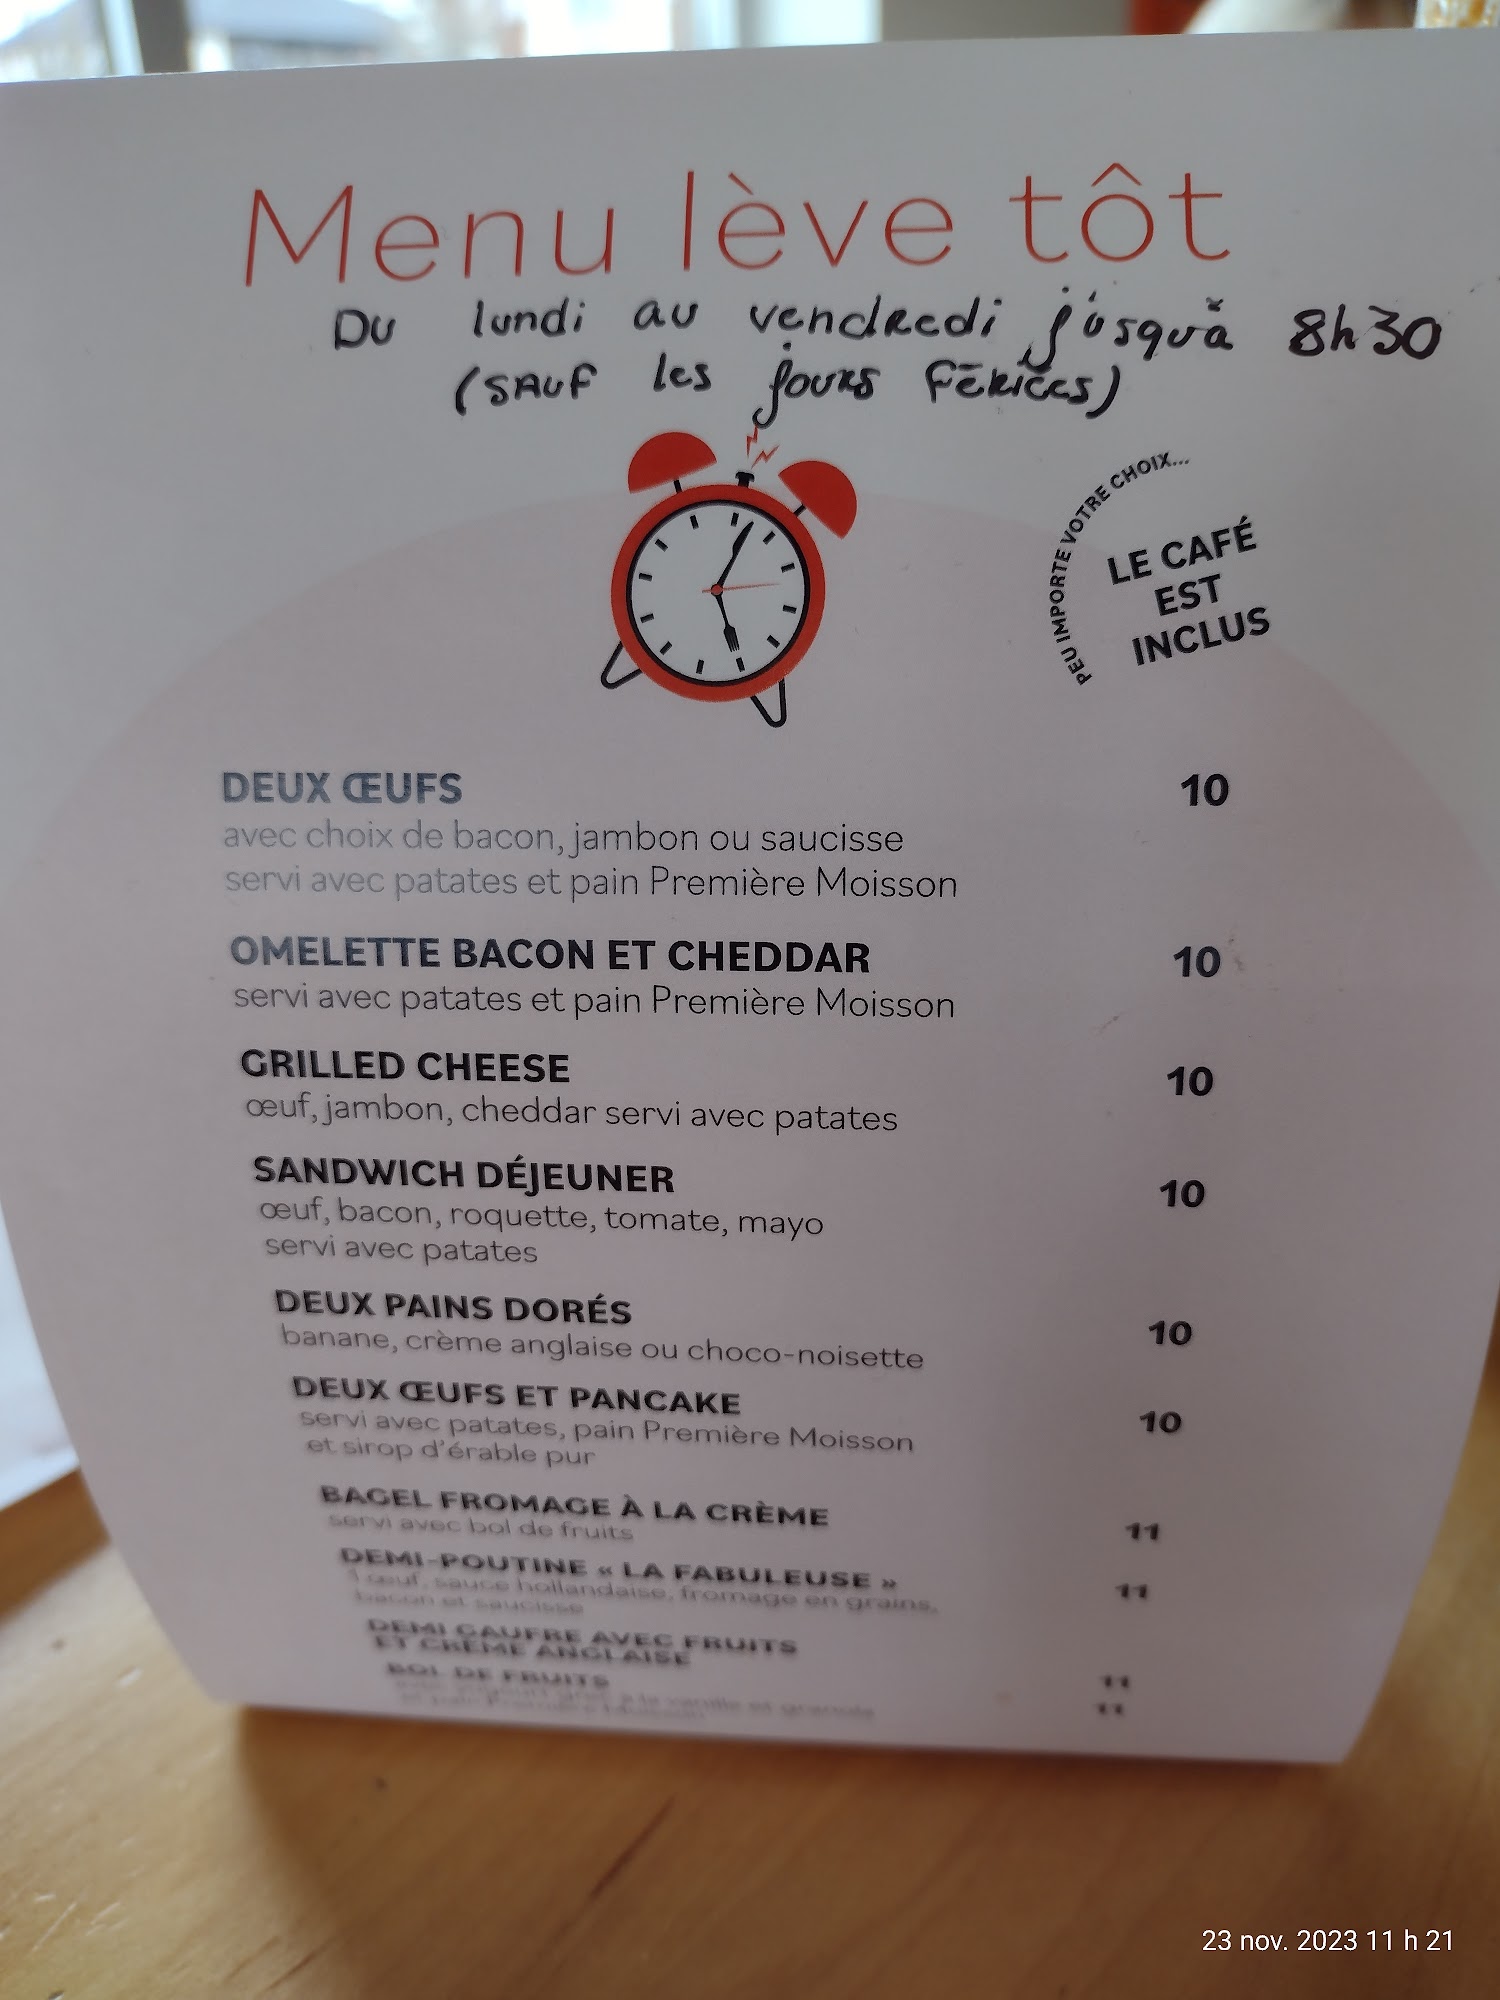 Menu lève tôt
Du lundi au vendredi jusquà 8h30
(SAUF les jours FÉRIÉES)
PEU IMPORTE VOTRE CHOIX...
LE CAFÉ
EST
INCLUS
DEUX ŒUFS 10
avec choix de bacon, jambon ou saucisse
servi avec patates et pain Première Moisson
OMELETTE BACON ET CHEDDAR 10
servi avec patates et pain Première Moisson
GRILLED CHEESE 10
œuf, jambon, cheddar servi avec patates
SANDWICH DÉJEUNER 10
œuf, bacon, roquette, tomate, mayo
servi avec patates
DEUX PAINS DORÉS 10
banane, crème anglaise ou choco-noisette
DEUX ŒUFS ET PANCAKE 10
servi avec patates, pain Première Moisson
et sirop d'érable pur
BAGEL FROMAGE À LA CRÈME 11
servi avec bol de fruits
DEMI-POUTINE « LA FABULEUSE » 11
1 œuf, sauce hollandaise, fromage en grains,
bacon et saucisse
DEMI GAUFRE AVEC FRUITS
ET CRÈME ANGLAISE 11
BOL DE FRUITS 11
à la vanille et granola
et pain Première Moisson
23 nov. 2023 11 h 21